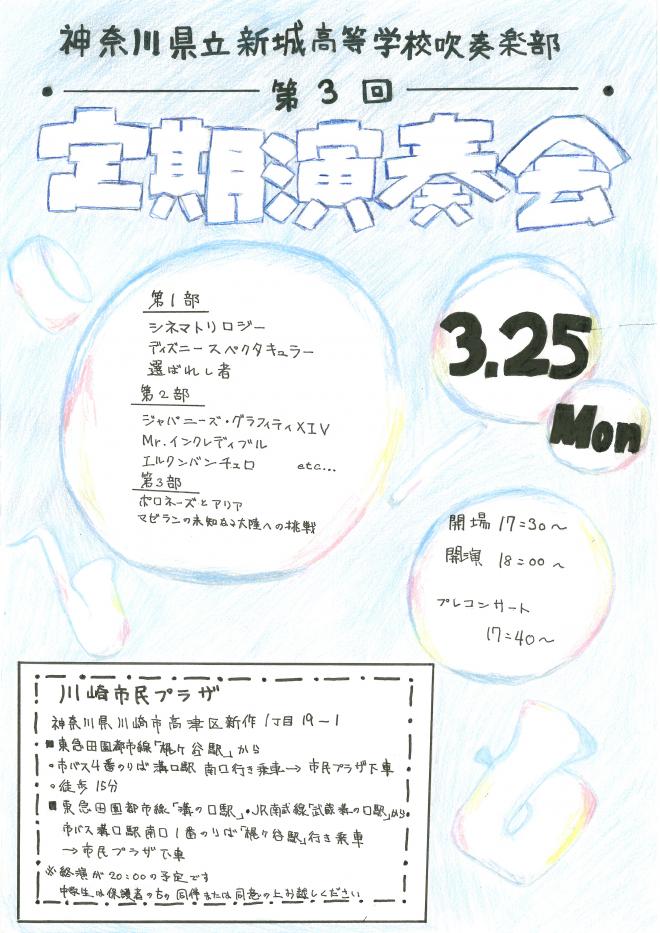 神奈川県立新城高等学校吹奏楽部
第3回
定期演奏会
第1部
シネマトリロジー
ディズニースペクタキュラー
選ばれし者
第2部
ジャパニーズ・グラフィティXIV
Mr.インクレディブル
エルクンバンチェロ etc...
第3部
ポロネーズとアリア
マゼランの未知なる大陸への挑戦
3.25
Mon
開場 17:30〜
開演 18:00〜
プレコンサート
17:40〜
川崎市民プラザ
神奈川県川崎市高津区新作1丁目19-1
■東急田園都市線「梶ケ谷駅」から
◦市バス4番のりば 溝口駅 南口行き乗車→市民プラザ下車
◦徒歩15分
■東急田園都市線「溝の口駅」・JR南武線「武蔵溝の口駅」から
市バス溝口駅南口1番のりば「梶ケ谷駅」行き乗車
→市民プラザ下車
※終演が20:00の予定です
中学生は保護者の方の同伴または同意の上お越しください